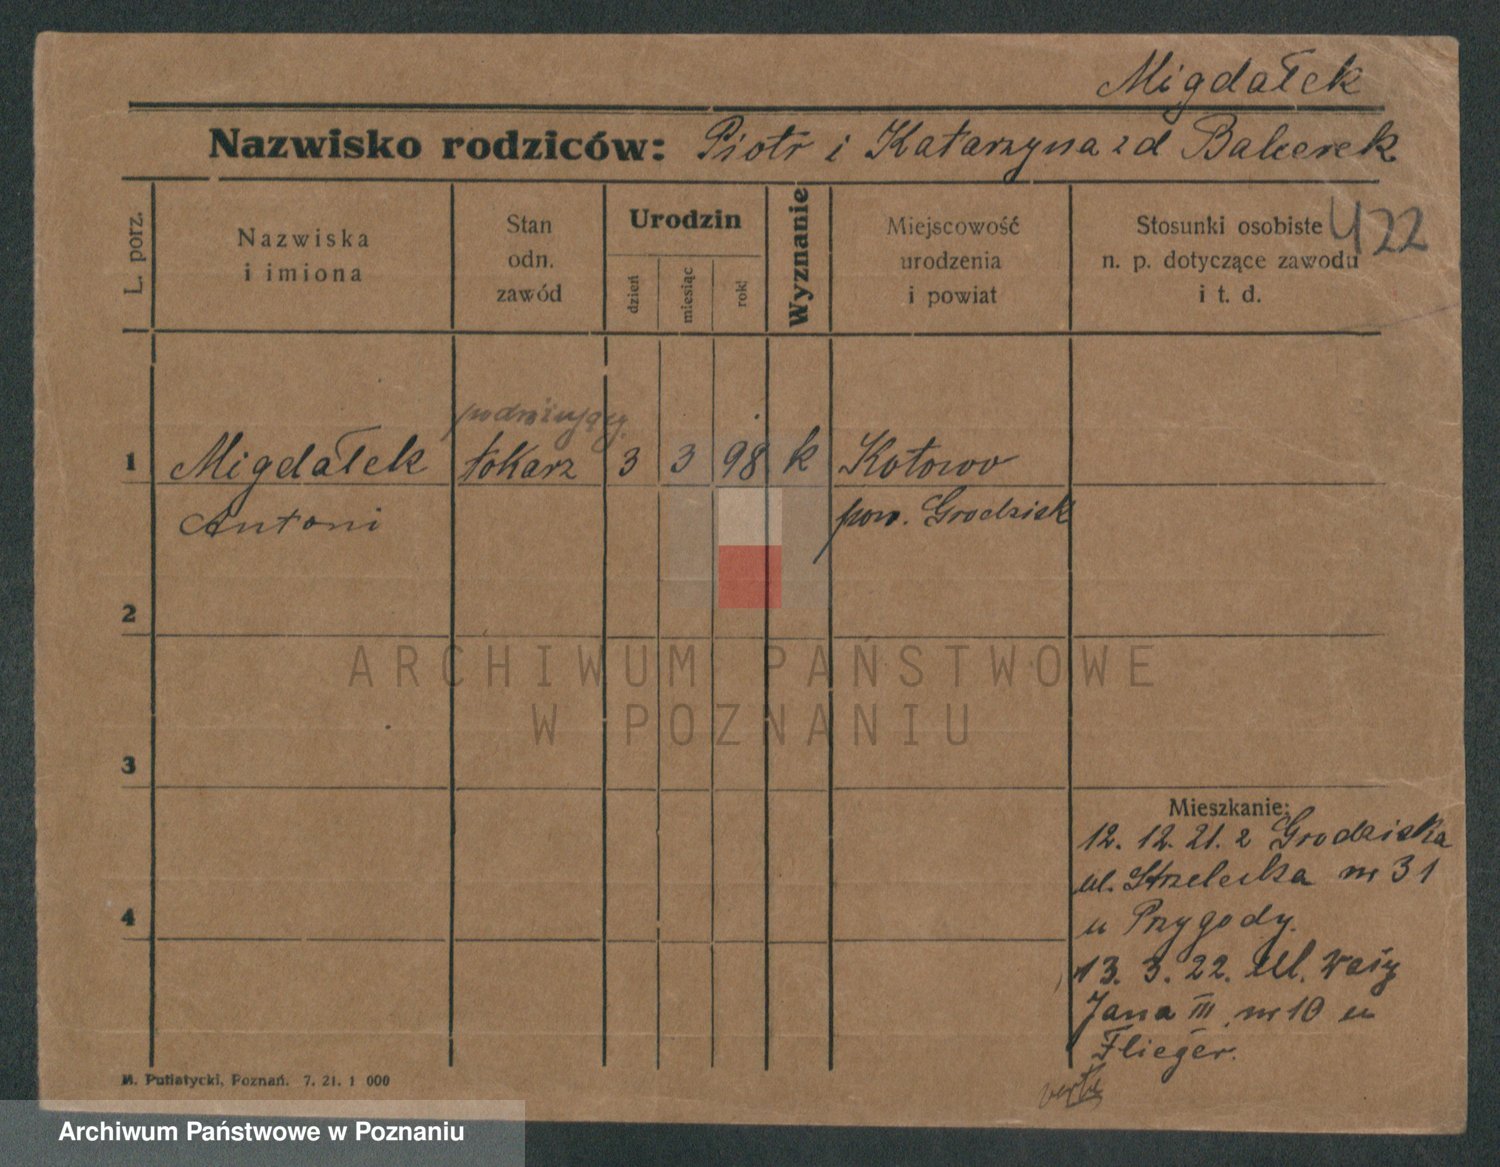 Migdałek
Nazwisko rodziców: Piotr i Katarzyna z d Balcerek
L. porz.
Nazwiska
i imiona
Stan
odn.
zawód
Urodzin
dzień
miesiąc
rok
Wyznanie
Miejscowość
urodzenia
i powiat
Stosunki osobiste
n. p. dotyczące zawodu
i t. d.
422
1 Migdałek tokarz 3 3 98 k Kotowo
Antoni pow. Grodzisk
2
3
4
ARCHIWUM PAŃSTWOWE
W POZNANIU
Mieszkanie:
12. 12. 21. z Grodziska
ul. Strzelecka nr 31
u Przygody.
13. 3. 22. ul. Wały
Jana III nr 10 u
Flieger.
verte
M. Putiatycki, Poznań. 7. 21. 1 000
Archiwum Państwowe w Poznaniu